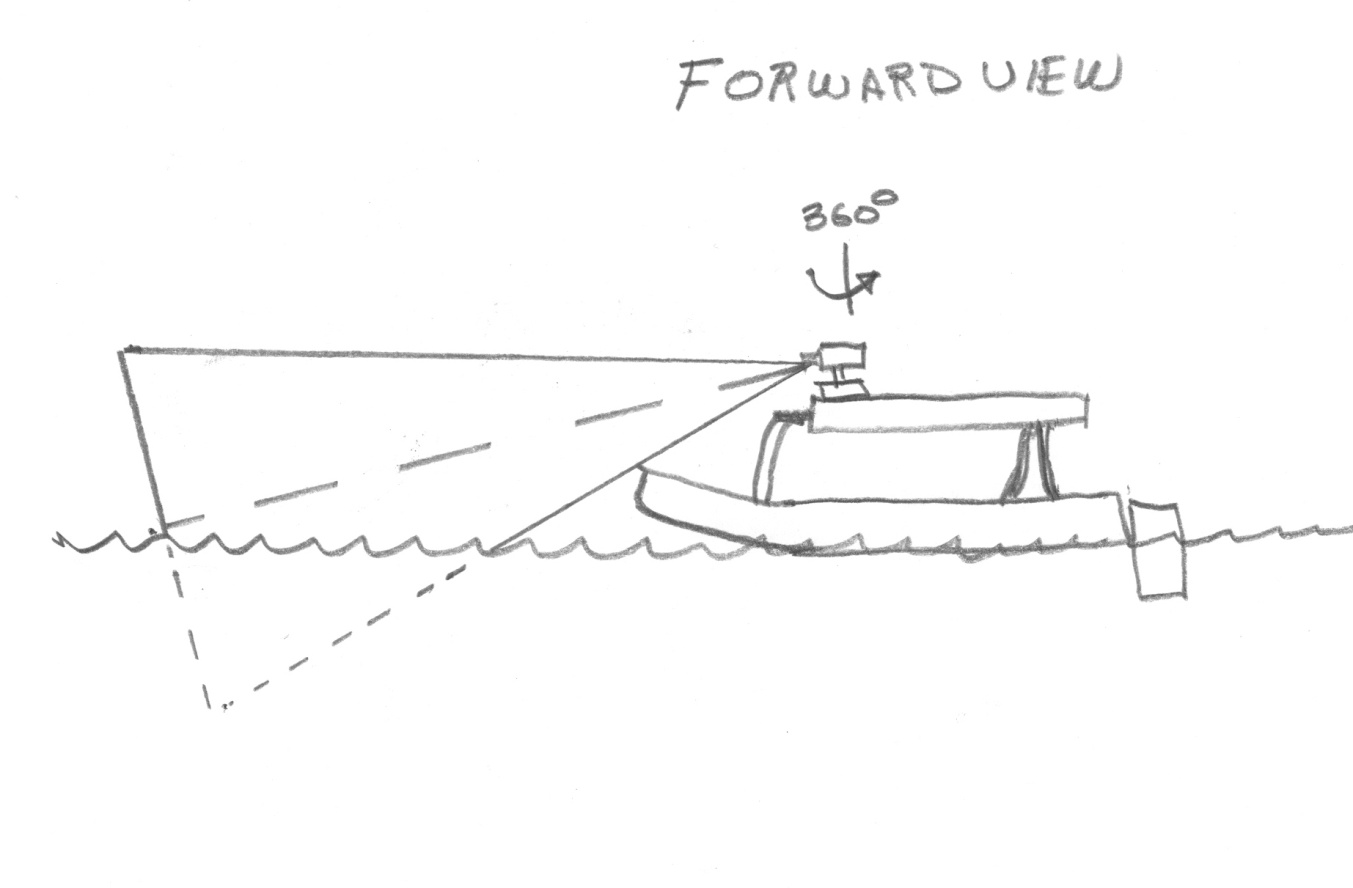 FORWARD VIEW
360°